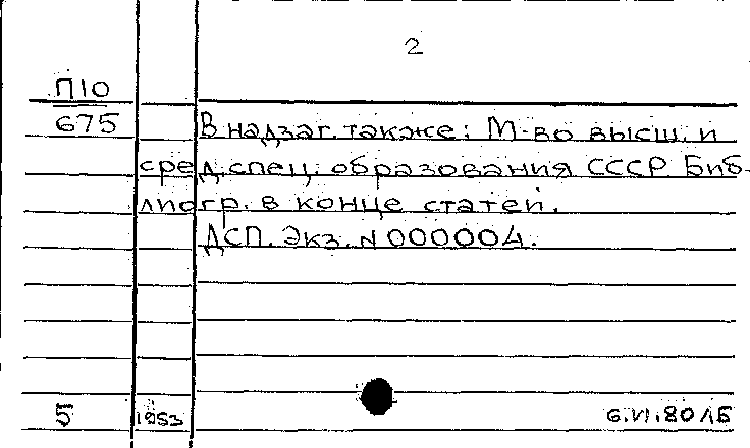 2
П10
675
В надзаг. также: М-во высш. и
сред. спец. образования СССР Биб-
лиогр. в конце статей.
ДСП. Экз. N 000004.
5 1953 6.VI.80 ЛБ